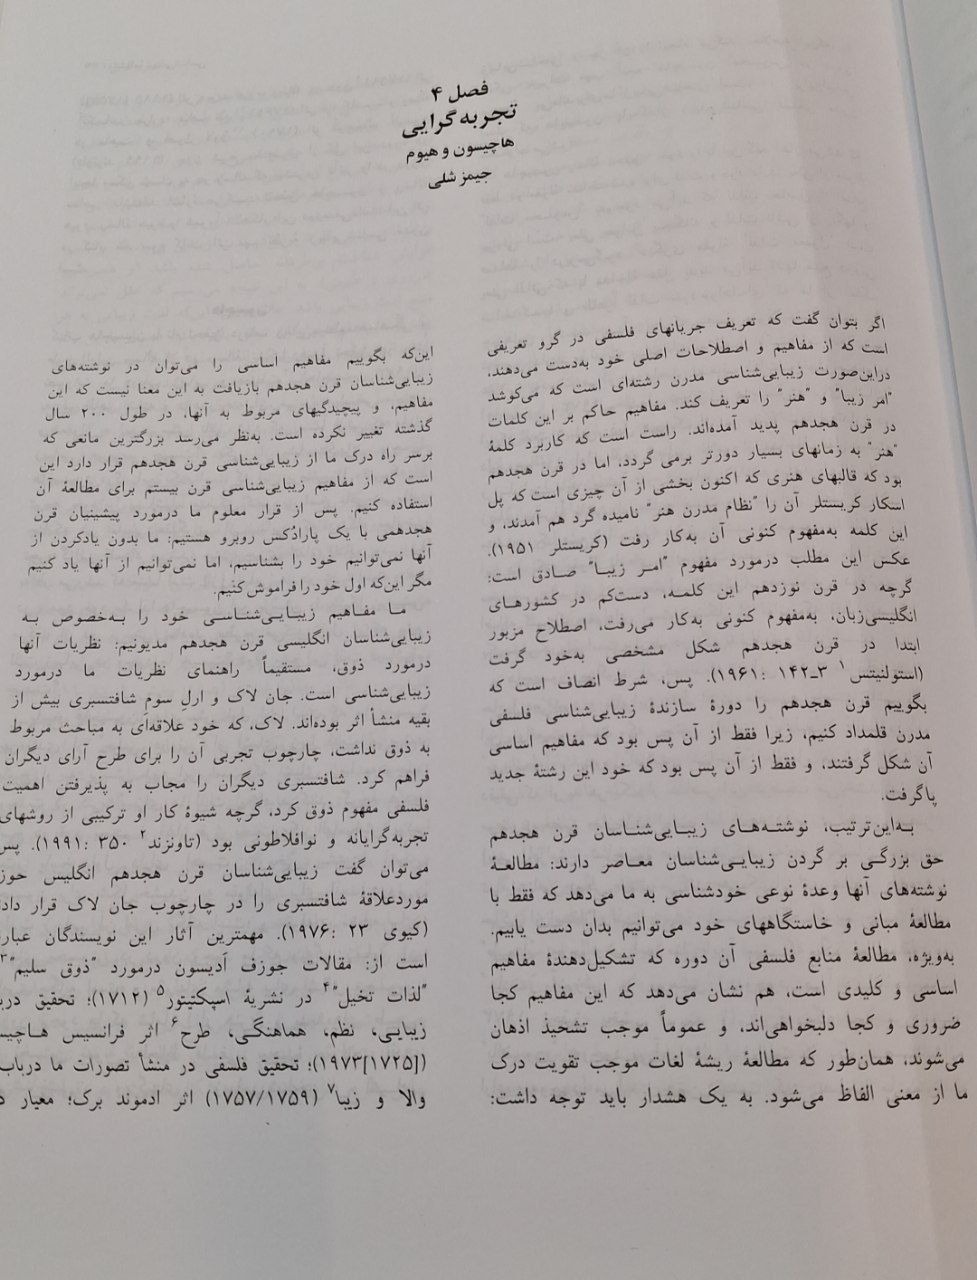 فصل ۴
تجربه‌گرایی
هاچیسون و هیوم
جیمز شلی
اگر بتوان گفت که تعریف جریانهای فلسفی در گرو تعریفی
است که از مفاهیم و اصطلاحات اصلی خود به‌دست می‌دهند،
دراین‌صورت زیبایی‌شناسی مدرن رشته‌ای است که می‌کوشد
"امر زیبا" و "هنر" را تعریف کند. مفاهیم حاکم بر این کلمات
در قرن هجدهم پدید آمده‌اند. راست است که کاربرد کلمهٔ
"هنر" به زمانهای بسیار دورتر برمی گردد، اما در قرن هجدهم
بود که قالبهای هنری که اکنون بخشی از آن چیزی است که پل
اسکار کریستلر آن را "نظام مدرن هنر" نامیده گرد هم آمدند، و
این کلمه به‌مفهوم کنونی آن به‌کار رفت (کریستلر ۱۹۵۱).
عکس این مطلب درمورد مفهوم "امر زیبا" صادق است:
گرچه در قرن نوزدهم این کلمه، دست‌کم در کشورهای
انگلیسی‌زبان، به‌مفهوم کنونی به‌کار می‌رفت، اصطلاح مزبور
ابتدا در قرن هجدهم شکل مشخصی به‌خود گرفت
(استولنیتس۱ ۳ـ۱۴۲ :۱۹۶۱). پس، شرط انصاف است که
بگوییم قرن هجدهم را دورهٔ سازندهٔ زیبایی‌شناسی فلسفی
مدرن قلمداد کنیم، زیرا فقط از آن پس بود که مفاهیم اساسی
آن شکل گرفتند، و فقط از آن پس بود که خود این رشتهٔ جدید
پاگرفت.
به‌این‌ترتیب، نوشته‌های زیبایی‌شناسان قرن هجدهم
حق بزرگی بر گردن زیبایی‌شناسان معاصر دارند: مطالعهٔ
نوشته‌های آنها وعدهٔ نوعی خودشناسی به ما می‌دهد که فقط با
مطالعهٔ مبانی و خاستگاههای خود می‌توانیم بدان دست یابیم.
به‌ویژه، مطالعهٔ منابع فلسفی آن دوره که تشکیل‌دهندهٔ مفاهیم
اساسی و کلیدی است، هم نشان می‌دهد که این مفاهیم کجا
ضروری و کجا دلبخواهی‌اند، و عموماً موجب تشحیذ اذهان
می‌شوند، همان‌طور که مطالعهٔ ریشهٔ لغات موجب تقویت درک
ما از معنی الفاظ می‌شود. به یک هشدار باید توجه داشت:
این‌که بگوییم مفاهیم اساسی را می‌توان در نوشته‌های
زیبایی‌شناسان قرن هجدهم بازیافت به این معنا نیست که این
مفاهیم، و پیچیدگیهای مربوط به آنها، در طول ۲۰۰ سال
گذشته تغییر نکرده است. به‌نظر می‌رسد بزرگترین مانعی که
برسر راه درک ما از زیبایی‌شناسی قرن هجدهم قرار دارد این
است که از مفاهیم زیبایی‌شناسی قرن بیستم برای مطالعهٔ آن
استفاده کنیم. پس از قرار معلوم ما درمورد پیشینیان قرن
هجدهمی با یک پارادُکس روبرو هستیم: ما بدون یادکردن از
آنها نمی‌توانیم خود را بشناسیم، اما نمی‌توانیم از آنها یاد کنیم
مگر این‌که اول خود را فراموش کنیم.
ما مفاهیم زیبایی‌شناسی خود را به‌خصوص به
زیبایی‌شناسان انگلیسی قرن هجدهم مدیونیم: نظریات آنها
درمورد ذوق، مستقیماً راهنمای نظریات ما درمورد
زیبایی‌شناسی است. جان لاک و ارلِ سوم شافتسبری بیش از
بقیه منشأ اثر بوده‌اند. لاک، که خود علاقه‌ای به مباحث مربوط
به ذوق نداشت، چارچوب تجربی آن را برای طرح آرای دیگران
فراهم کرد. شافتسبری دیگران را مجاب به پذیرفتن اهمیت
فلسفی مفهوم ذوق کرد، گرچه شیوهٔ کار او ترکیبی از روشهای
تجربه‌گرایانه و نوافلاطونی بود (تاونزند۲ ۳۵۰ :۱۹۹۱). پس
می‌توان گفت زیبایی‌شناسان قرن هجدهم انگلیس حوز
موردعلاقهٔ شافتسبری را در چارچوب جان لاک قرار داد
(کیوی ۲۳ :۱۹۷۶). مهمترین آثار این نویسندگان عبار
است از: مقالات جوزف آدیسون درمورد "ذوق سلیم"۳
"لذات تخیل"۴ در نشریهٔ اسپکتیتور۵ (۱۷۱۲)؛ تحقیق دربا
زیبایی، نظم، هماهنگی، طرح۶ اثر فرانسیس هاچیس
([۱۷۲۵]۱۹۷۳)؛ تحقیق فلسفی در منشأ تصورات ما درباب
والا و زیبا۷ (۱۷۵۷/۱۷۵۹) اثر ادموند برک؛ معیار ذ